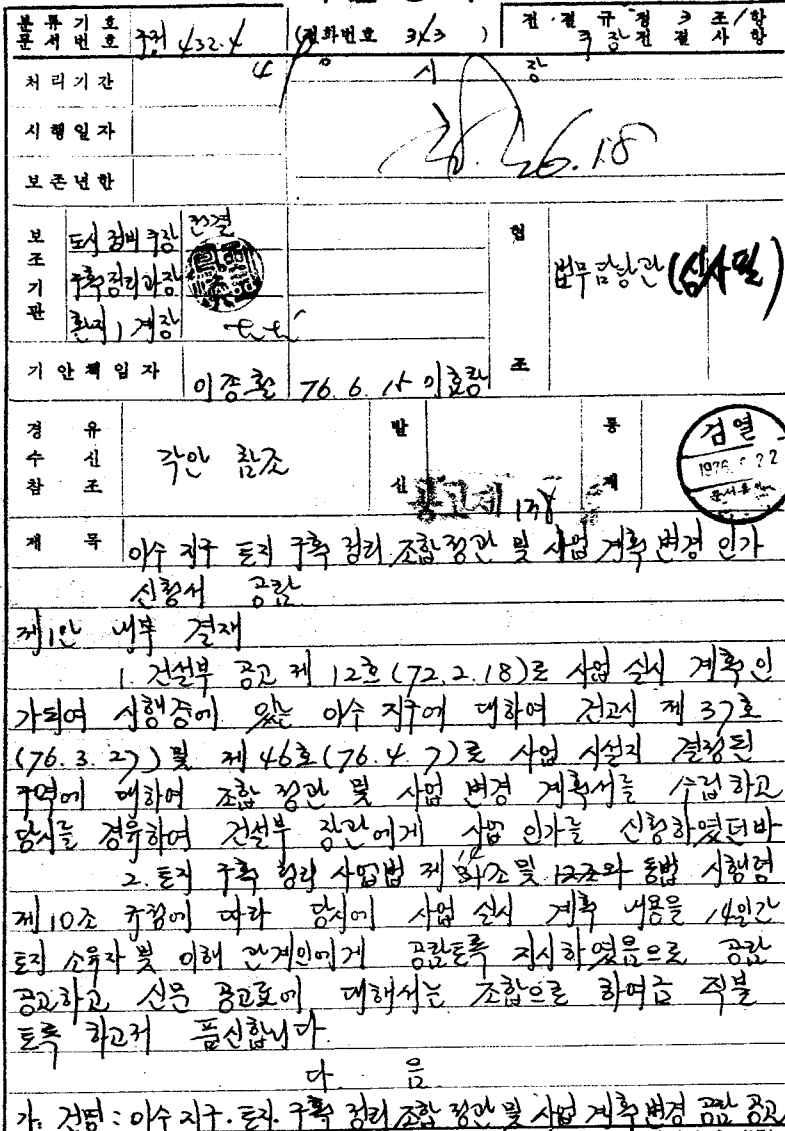 분류기호 문서번호 구정 432.4 (전화번호 3x3 ) 전·결규정 3조 1항 국장전결사항
처리기간 시장
시행일자 6.18
보존년한
보조기관 도시정비국장 전결 협
구획정리과장 법무담당관 (심사필)
환지1계장
기안책임자 이종 76. 6. 15 조
경유 수신 참조 각안 참조 발신 통제 검열
1976. 6. 22
공고제 178
제목 이수 지구 토지 구획 정리 조합 정관 및 사업 계획 변경 인가
신청서 공람
제1안 내부 결재
1. 건설부 공고 제 12호 (72. 2. 18)로 사업 실시 계획 인
가되여 시행중에 있는 이수 지구에 대하여 건고시 제 37호
(76. 3. 27) 및 제 46호 (76. 4. 7)로 사업 시설지 결정된
구역에 대하여 조합 정관 및 사업 변경 계획서를 수립하고
당시를 경유하여 건설부 장관에게 사업 인가를 신청하였던바
2. 토지 구획 정리 사업법 제 조 및 12조와 동법 시행령
제10조 규정에 따라 당시에 사업 실시 계획 내용을 14일간
토지 소유자 및 이해 관계인에게 공람토록 지시하였음으로 공람
공고하고 신문 공고료에 대해서는 조합으로 하여금 직불
토록 하고저 품신합니다.
다 음
가. 건명 : 이수 지구. 토지. 구획 정리 조합 정관 및 사업 계획 변경 공람 공고